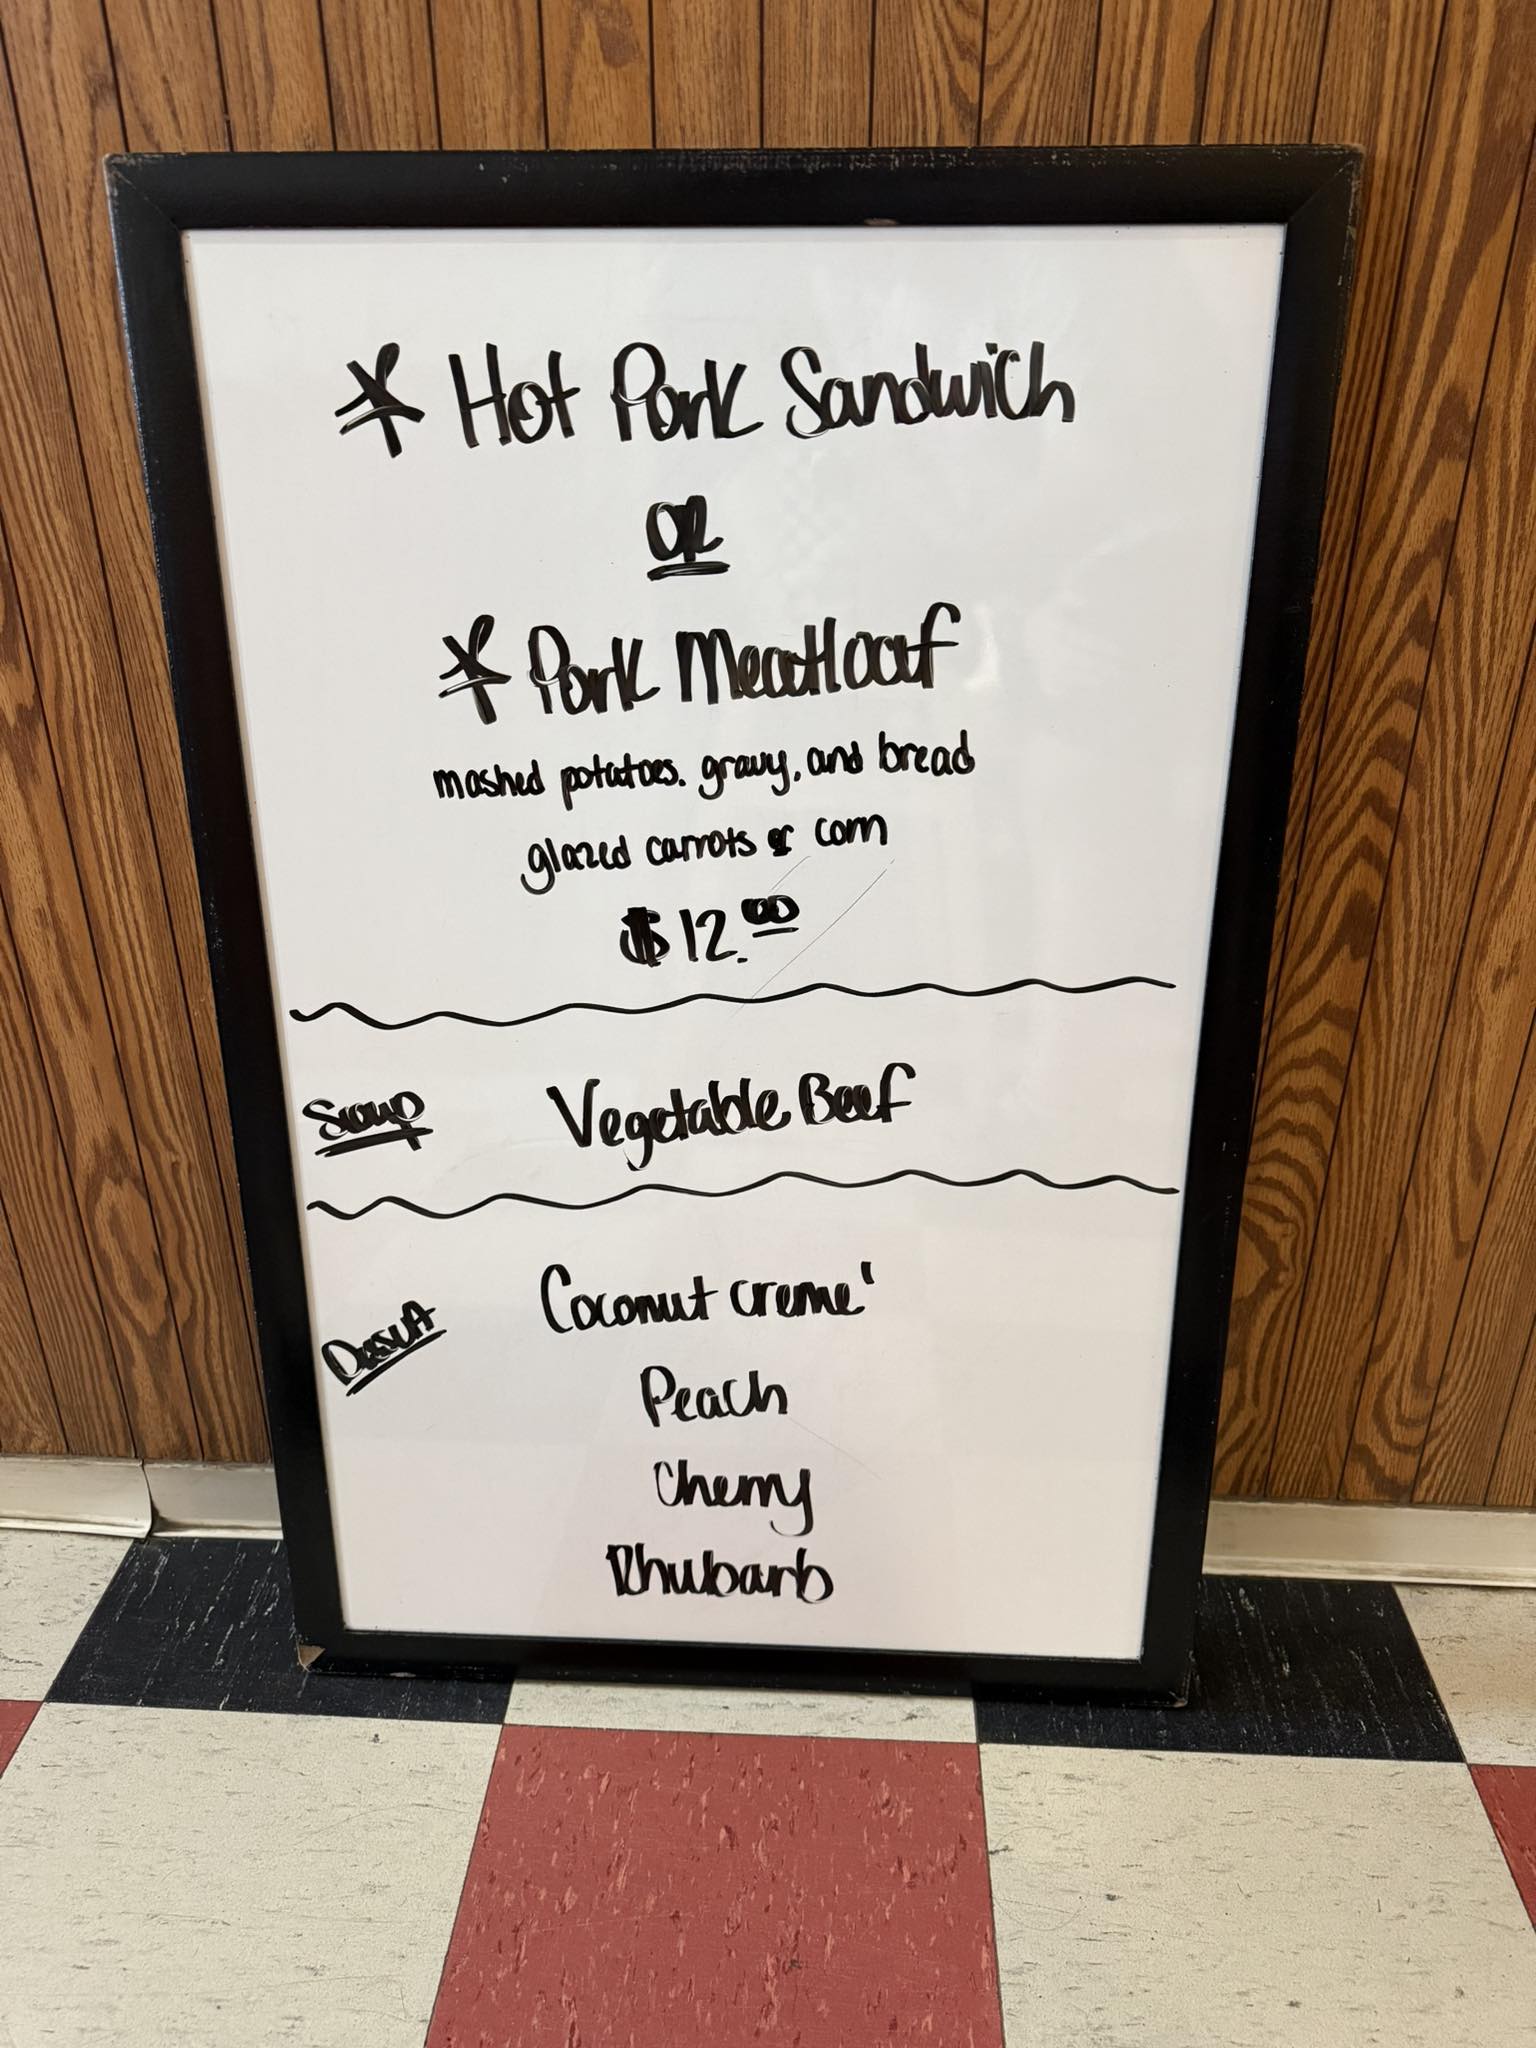 * Hot Pork Sandwich
OR
* Pork Meatloaf
mashed potatoes, gravy, and bread
glazed carrots or corn
$12.00
Soup Vegetable Beef
Dessert Coconut creme'
Peach
Cherry
Rhubarb